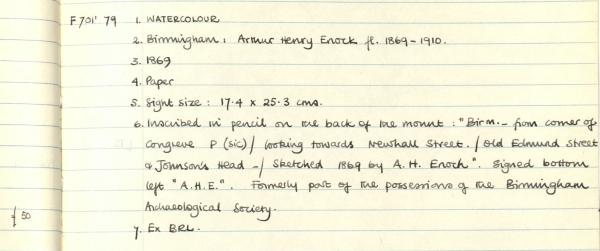 F 701' 79 1. WATERCOLOUR
2. Birmingham: Arthur Henry Enock fl. 1869-1910.
3. 1869
4. Paper
5. Sight size: 17.4 x 25.3 cms.
6. Inscribed in pencil on the back of the mount: "Birm. - from corner of
Congreve P (sic)/ looking towards Newhall Street. / Old Edmund Street
& Johnson's Head -/ Sketched 1869 by A. H. Enoch". Signed bottom
left "A.H.E.". Formerly part of the possessions of the Birmingham
Archaeological Society.
£50
7. Ex BRL.